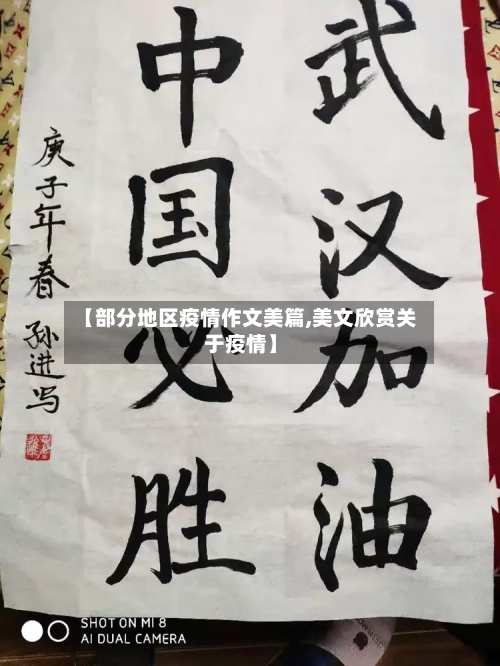 武汉加油
中国必胜
庚子年春 孙进写
【部分地区疫情作文美篇,美文欣赏关
于疫情】
SHOT ON MI 8
AI DUAL CAMERA